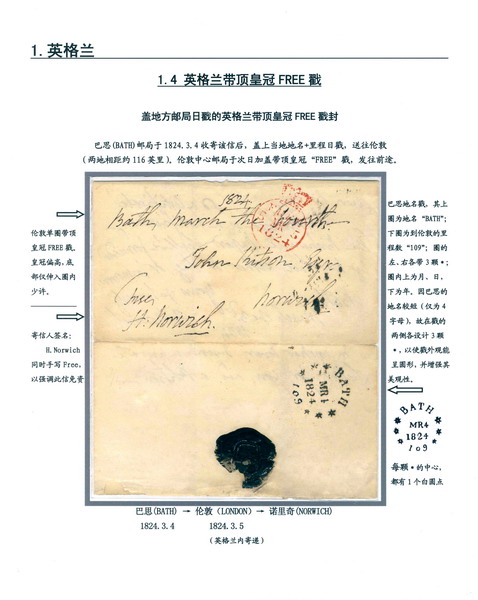 1. 英格兰
1.4 英格兰带顶皇冠 FREE 戳
盖地方邮局日戳的英格兰带顶皇冠 FREE 戳封
巴思(BATH)邮局于 1824.3.4 收寄该信后，盖上当地地名+里程日戳，送往伦敦
(两地相距约 116 英里)。伦敦中心邮局于次日加盖带顶皇冠 “FREE” 戳，发往前途。
伦敦单圈带顶
皇冠 FREE 戳，
皇冠偏高，底
部仅伸入圈内
少许。
寄信人签名：
H.Norwich
同时手写 Free，
以强调此信免资
1824
Bath, March the Fourth
John Kitson, Esqr
Norwich
Free
H. Norwich
1824
BATH
MR4
1824
109
巴思地名戳，其上
圈为地名 “BATH”；
下圈为到伦敦的里
程数 “109”；圈的
左、右各带 3 颗*；
圈内上为月、日，
下为年。因巴思的
地名较短（仅为 4
字母），故在戳的
两侧各设计 3 颗
*，以使戳外观能
呈圆形，并增强其
美观性。
BATH
MR4
1824
109
每颗*的中心，
都有 1 个白圆点
巴思(BATH) → 伦敦 (LONDON) → 诺里奇(NORWICH)
1824.3.4 1824.3.5
(英格兰内寄递)